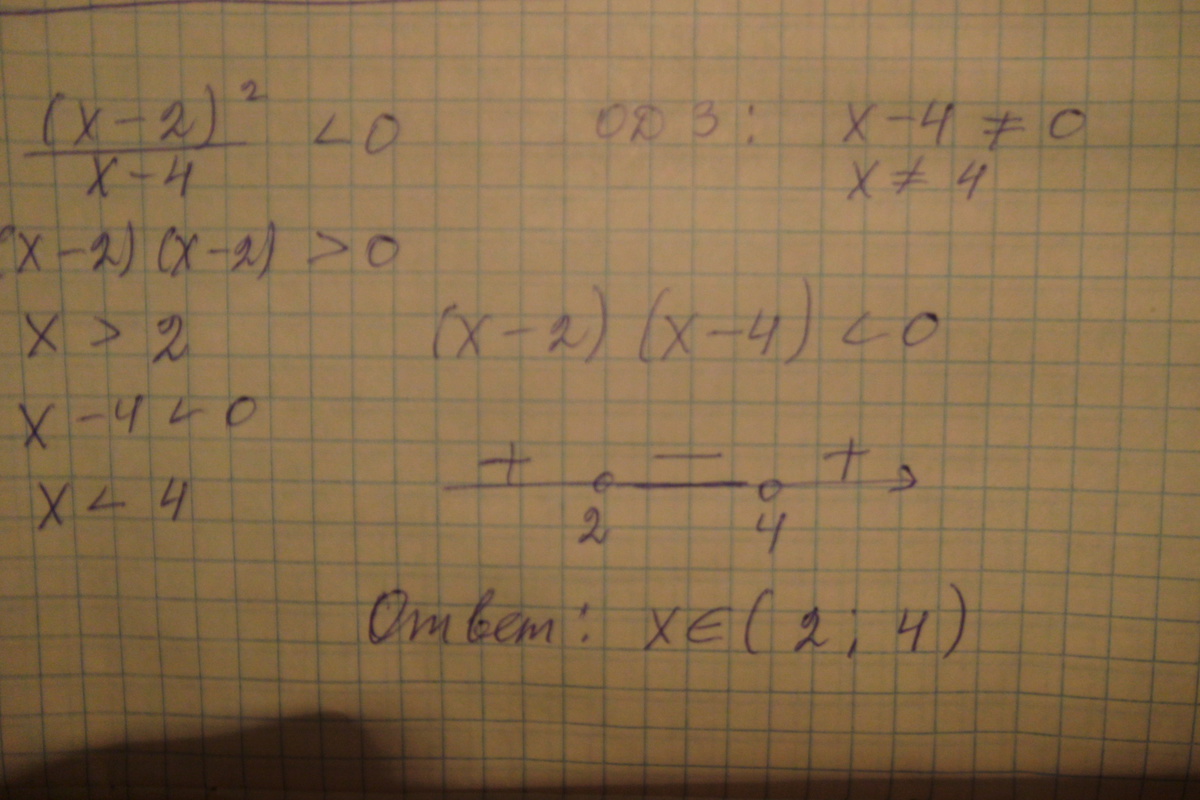 (x-2)² / x-4 < 0
ОДЗ: x-4 ≠ 0
x ≠ 4
(x-2)(x-2) > 0
x > 2
(x-2)(x-4) < 0
x-4 < 0
x < 4
+ — +
2 4
Ответ: x∈(2; 4)